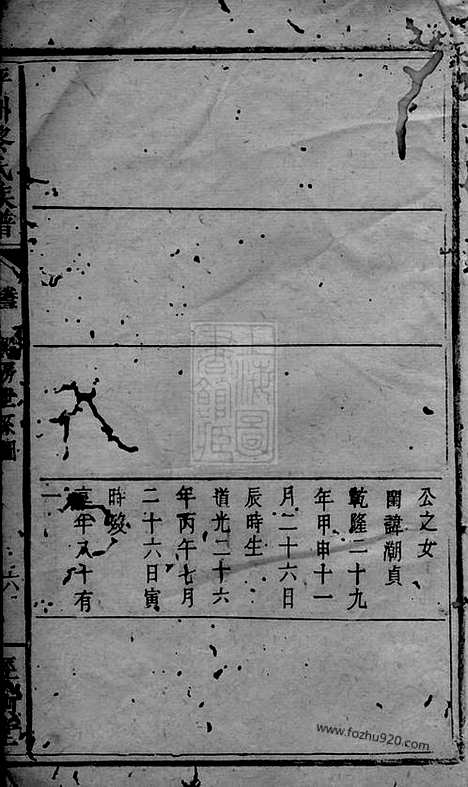 公之女
閨諱潮貞
乾隆二十九
年甲申十一
月二十六日
辰時生
道光二十六
年丙午七月
二十六日寅
時歿
享年八十有
氏族譜
上海圖書館藏
www.fozhu920.com